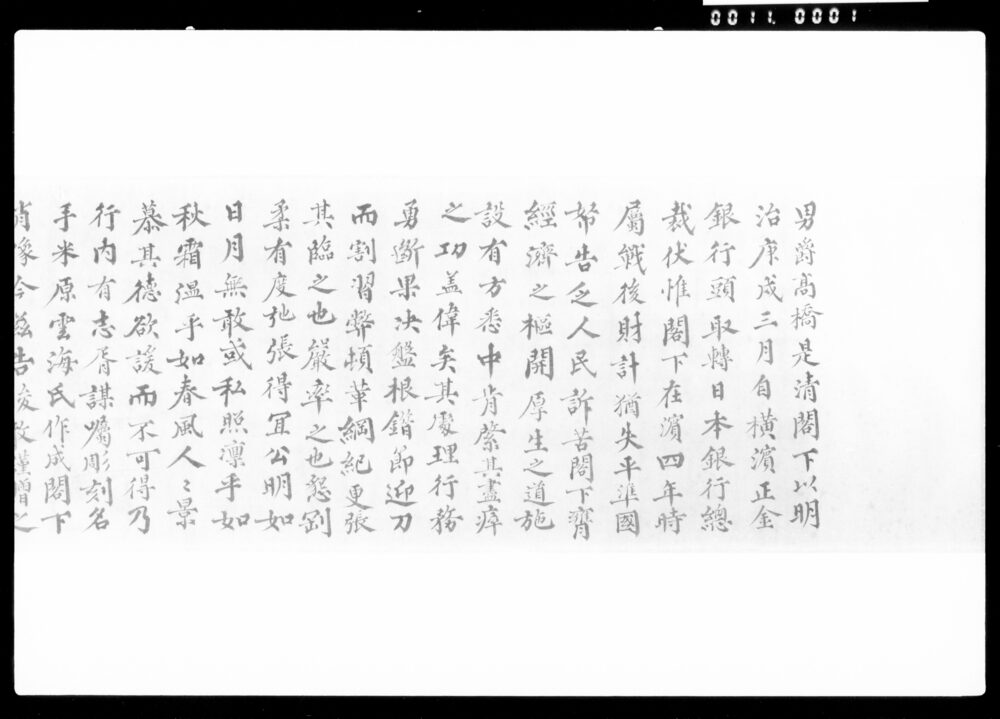 0011. 0001
男爵髙橋是清閣下以明
治庚戌三月自横濱正金
銀行頭取轉日本銀行總
裁伏惟閣下在濵四年時
屬戦後財計猶失平準國
帑告乏人民訴苦閣下膺
經濟之樞開厚生之道施
設有方悉中肯綮其盡瘁
之功盖偉矣其處理行務
勇断果决盤根錯節迎刀
而割習弊頓革綱紀更張
其臨之也嚴率之也懇剛
柔有度弛張得宜公明如
日月無敢或私照凛乎如
秋霜温乎如春風人〻景
慕其德欲諼而不可得乃
行内有志胥謀囑彫刻名
手米原雲海氏作成閣下
肖像今茲告竣敬謹贈之